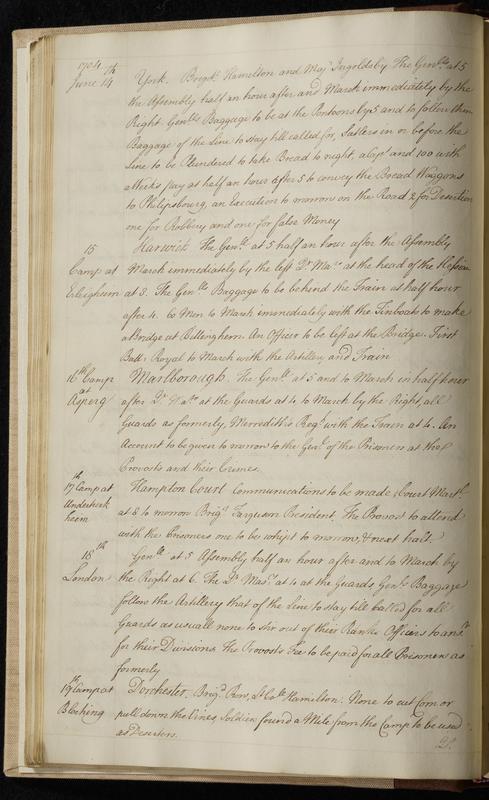 1704
June 14th York. Brigdr. Hamilton and Maj Ingoldsby The Genlle at 5
the Assembly half an hour after and March immediately by the
Right Genlls Baggage to be at the Pontoons by 5 and to follow them
Baggage of the Line to stay till called for, Sutlers in or before the
Line to be Plundered to take Bread to night, a Capt and 100 with
a Weeks Pay at half an hour after 5 to convey the Bread Waggons
to Philipsbourg, an Execution to morrow on the Road 2 for Desertion
one for Robbery and one for false Money
15 Harwick The Genlle. at 5 half an hour after the Assembly
Camp at March immediately by the left Dr. Mars. at the head of the Hessian
at 3. The Genlls Baggage to be behind the Train at half hour
after 4. 60 Men to March immediately with the Tinboats to make
a Bridge at Billenghem. An Officer to be left at the Bridge. First
Batt: Royal to March with the Artillery and Train
16th Camp Marlborough. The Genlle at 5 and to March in half hour
at after Dr. at the Guards at 4 to March by the Right all
Asperg Guards as formerly, Merredith's Regt with the Train at 4. An
Account to be given to morrow to the Genl of the Prisoners at the
Provosts and their Crimes.
17th Camp at Hampton Court Communications to be made, Court Martl
at 8 to morrow Brigr Ferguson President. The Provost to attend
heem with the Prisoners one to be whipt to morrow, & next halt.
18th Genlle at 5 Assembly half an hour after and to March by
London the Right at 6. The Dr Mars. at 4 at the Guards Genls Baggage
follow the Artillery that of the Line to stay till called for all
Guards as usuall none to stir out of their Ranks Officers to ansr
for their Divisions The Provosts Fee to be paid for all Prisoners as
formerly
19th Camp at Dorchester. Brigd. Row, Lt Coll Hamilton. None to cut Corn or
pull down the Vines, Soldiers found a Mile from the Camp to be used
as Deserters.